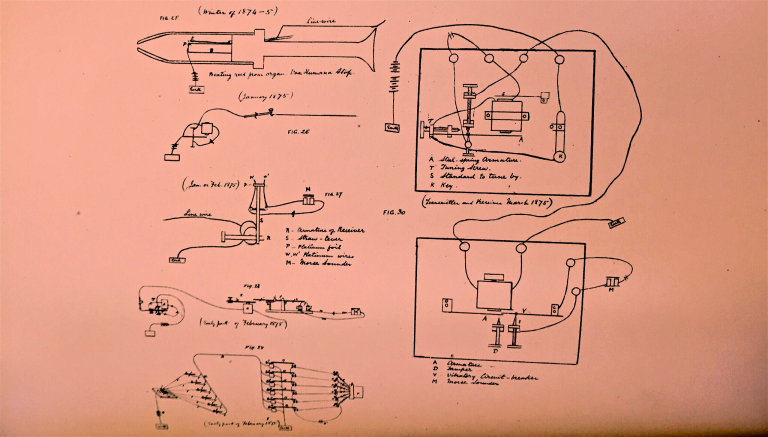 FIG. 25
(Winter of 1874-5)
Line wire
Beating reed from organ. Vox Humana Stop.
Earth
(January 1875)
FIG. 26
(Jan. or Feb. 1875)
W W'
P
M
FIG. 27
Line wire
S
R
Earth
R - Armature of Receiver
S - Straw-lever
P - Platinum foil
W, W' Platinum wires
M - Morse Sounder
Fig. 28
(Early part of February 1875)
(Early part of February 1875)
Earth
Earth
T
S
A
K
A Steel spring Armature.
T Tuning Screw.
S Standard to tune by.
K Key.
(Transmitter and Receiver March 1875)
FIG. 30
Earth
M
A
V
D
A Armature
D Damper
V Vibratory Circuit-breaker
M Morse Sounder